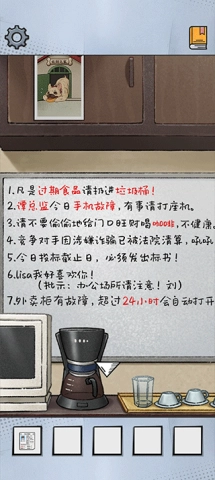 1.凡是过期食品请扔进垃圾桶!
2.谭总监今日手机故障,有事请打座机。
3.请不要偷偷地给门口旺财喝,不健康。
4.竞争对手因涉嫌诈骗已被法院清算,吼吼
5.今日投标截止日,必须发出标书!
6.lisa我好喜欢你!
(批示:办公场所请注意!刘)
7.外卖柜有故障,超过24小时会自动打开